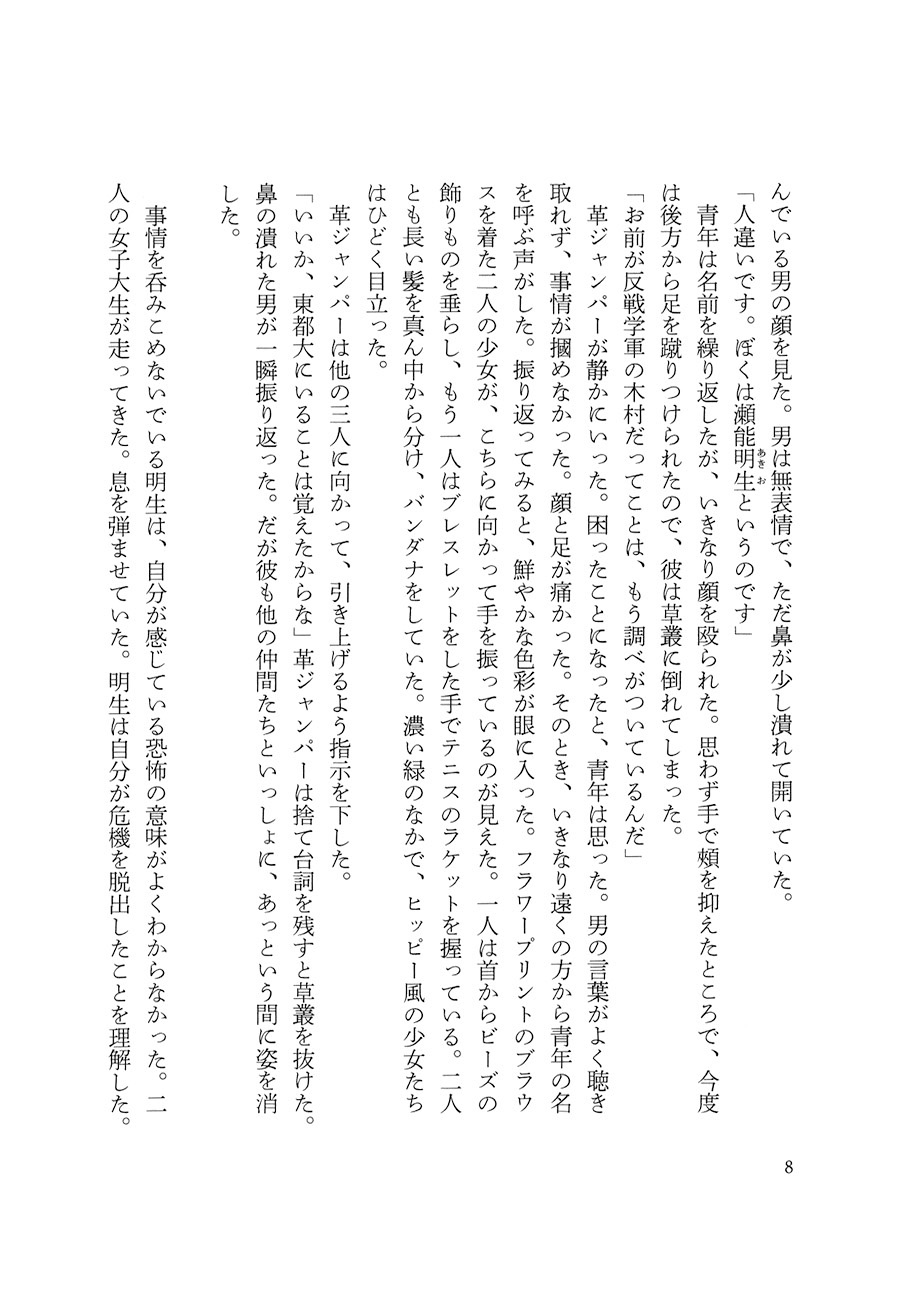 んでいる男の顔を見た。男は無表情で、ただ鼻が少し潰れて開いていた。
「人違いです。ぼくは瀬能明生というのです」
あきお
青年は名前を繰り返したが、いきなり顔を殴られた。思わず手で頬を抑えたところで、今度
は後方から足を蹴りつけられたので、彼は草叢に倒れてしまった。
「お前が反戦学軍の木村だってことは、もう調べがついているんだ」
革ジャンパーが静かにいった。困ったことになったと、青年は思った。男の言葉がよく聴き
取れず、事情が摑めなかった。顔と足が痛かった。そのとき、いきなり遠くの方から青年の名
を呼ぶ声がした。振り返ってみると、鮮やかな色彩が眼に入った。フラワープリントのブラウ
スを着た二人の少女が、こちらに向かって手を振っているのが見えた。一人は首からビーズの
飾りものを垂らし、もう一人はブレスレットをした手でテニスのラケットを握っている。二人
とも長い髪を真ん中から分け、バンダナをしていた。濃い緑のなかで、ヒッピー風の少女たち
はひどく目立った。
革ジャンパーは他の三人に向かって、引き上げるよう指示を下した。
「いいか、東都大にいることは覚えたからな」革ジャンパーは捨て台詞を残すと草叢を抜けた。
鼻の潰れた男が一瞬振り返った。だが彼も他の仲間たちといっしょに、あっという間に姿を消
した。
事情を呑みこめないでいる明生は、自分が感じている恐怖の意味がよくわからなかった。二
人の女子大生が走ってきた。息を弾ませていた。明生は自分が危機を脱出したことを理解した。
8